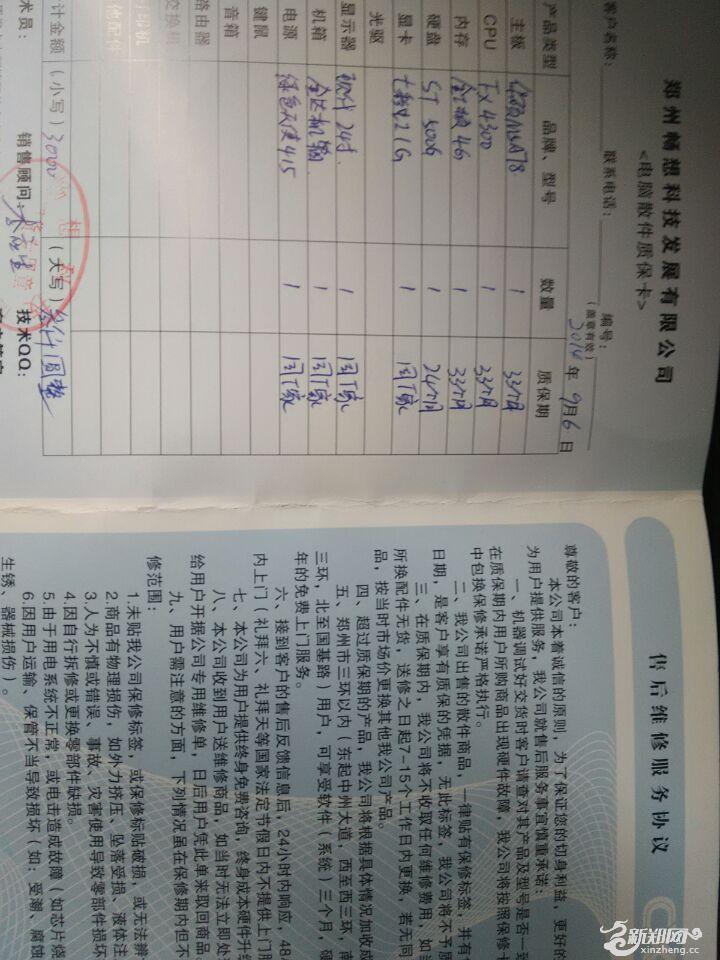 郑州畅想科技发展有限公司
<电脑散件质保卡>
客户名称: 联系电话: 编号:
(盖章有效)
2014年9月6日
产品类型 品牌、型号 数量 质保期
主板 M4A78 1 33个月
CPU FX 4300 1 33个月
内存 4G 1 33个月
硬盘 ST 500G 1 24个月
显卡 七彩虹 1G 1 同厂家
光驱
显示器 现代24寸 1 同厂家
机箱 1 同厂家
电源 415 1 同厂家
键鼠
音箱
路由器
交换机
打印机
他配件
计金额 (小写) 3000 (大写) 叁仟圆整
术员: 销售顾问: 技术QQ:
售后维修服务协议
尊敬的客户:
本公司本着诚信的原则，为了保证您的切身利益，更好的
为用户提供服务，我公司就售后服务事宜慎重承诺:
一、机器调试好交货时客户请查对其产品及型号是否一致
在质保期内用户所购商品出现硬件故障，我公司将按照保修卡
中包换保修承诺严格执行。
二、我公司出售的散件商品，一律贴有保修标签，并有
日期，是客户享有质保的凭据，无此标签，我公司将不予质
三、在质保期内，我公司将不收取任何维修费用，如当
所换配件无货，送修之日起7-15个工作日内更换，若无同
品，按当时市场价更换其他我公司产品。
四、超过质保期的产品，我公司将根据具体情况加收成
五、郑州市三环以内（东起中州大道，西至西三环，南
三环，北至国基路）用户，可享受软件（系统）三个月，硬
年的免费上门服务。
六、接到客户的售后反馈信息后，24小时内响应，48
内上门（礼拜六、礼拜天等国家法定节假日内不提供上门服
七、本公司为用户提供终身免费咨询，终身成本硬件升级
八、本公司收到用户送维修商品，如当时无法立即处
给用户开据公司专用维修单，日后用户凭此单来取回商品
九、用户需注意的方面，下列情况虽在保修期内但不
修范围:
1.未贴我公司保修标签，或保修标贴破损，或无法辨
2.商品有物理损伤，如外力挤压、坠落受损、液体注
3.人为不慎或错误、事故、灾害使用导致零部件损坏
4.因自行拆修或更换零部件缺损。
5.由于用电系统不正常，或电击造成故障（如芯片烧
6.因用户运输、保管不当导致损坏（如:受潮、腐蚀
生锈、器械损伤）。
新郑网
xinzheng.cn